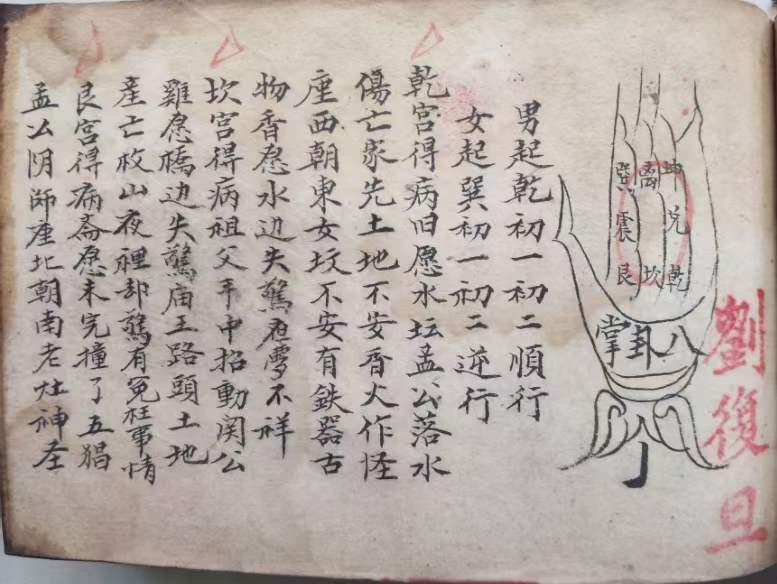 劉復旦
巽離坤
震兌
艮坎乾
八卦掌
男起乾初一初二順行
女起巽初一初二逆行
乾宮得病旧愿水坛孟公落水
傷亡家先土地不安香火作怪
座西朝東女坟不安有鉄器古
物香愿水边失驚夜夢不祥
坎宮得病祖父手中招動関公
雞愿橋边失驚庙王路頭土地
產亡枚山夜裡却驚有冤枉事情
艮宮得病斋愿未完撞了五猖
孟公阴師座北朝南老灶神圣